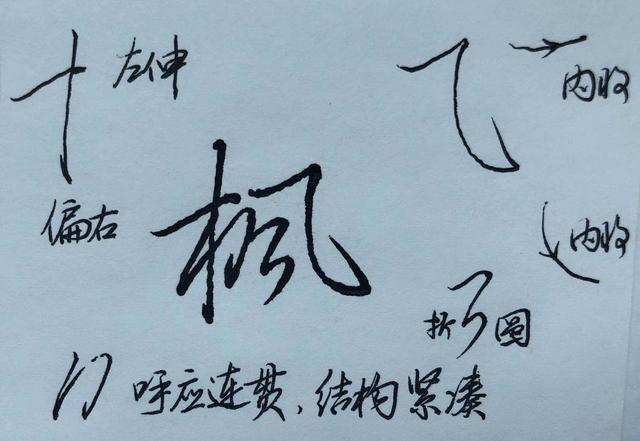 左伸
内收
偏右
枫
内收
折 圆
呼应连贯、结构紧凑